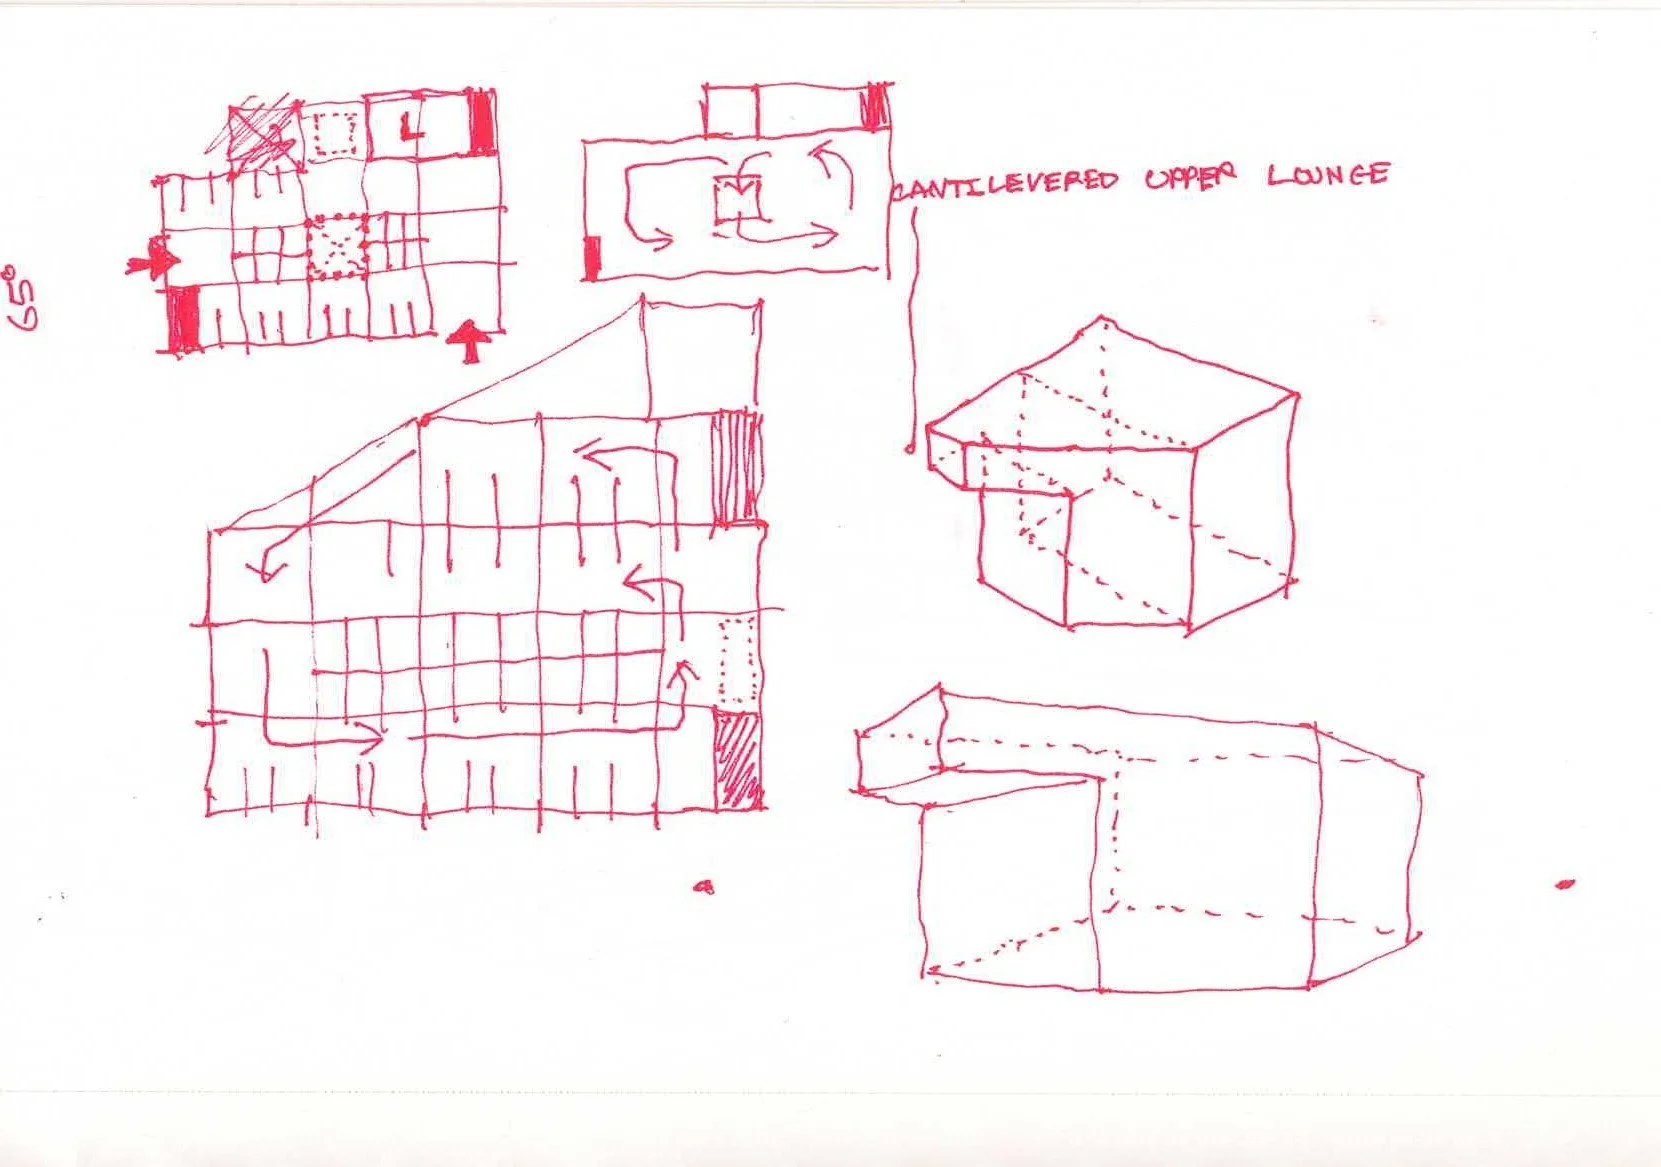 L
CANTILEVERED UPPER LOUNGE
65°